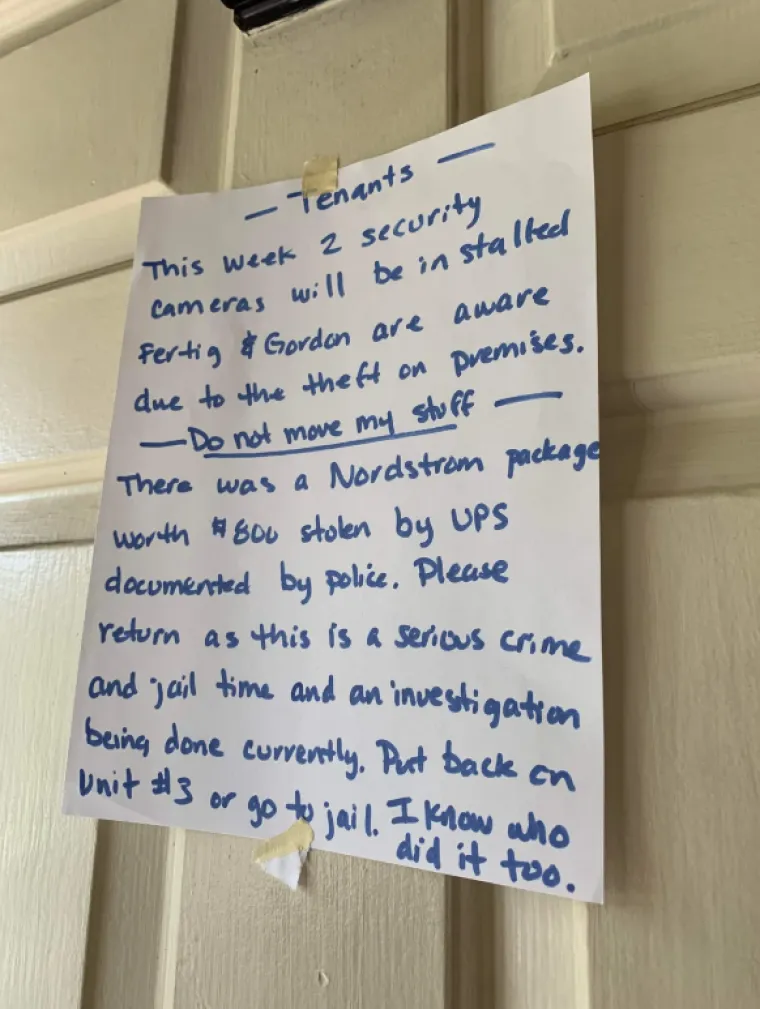 — Tenants —
This week 2 security
cameras will be installed
Fertig & Gordon are aware
due to the theft on premises.
— Do not move my stuff —
There was a Nordstrom package
worth $800 stolen by UPS
documented by police. Please
return as this is a serious crime
and jail time and an investigation
being done currently. Put back on
Unit #3 or go to jail. I know who
did it too.